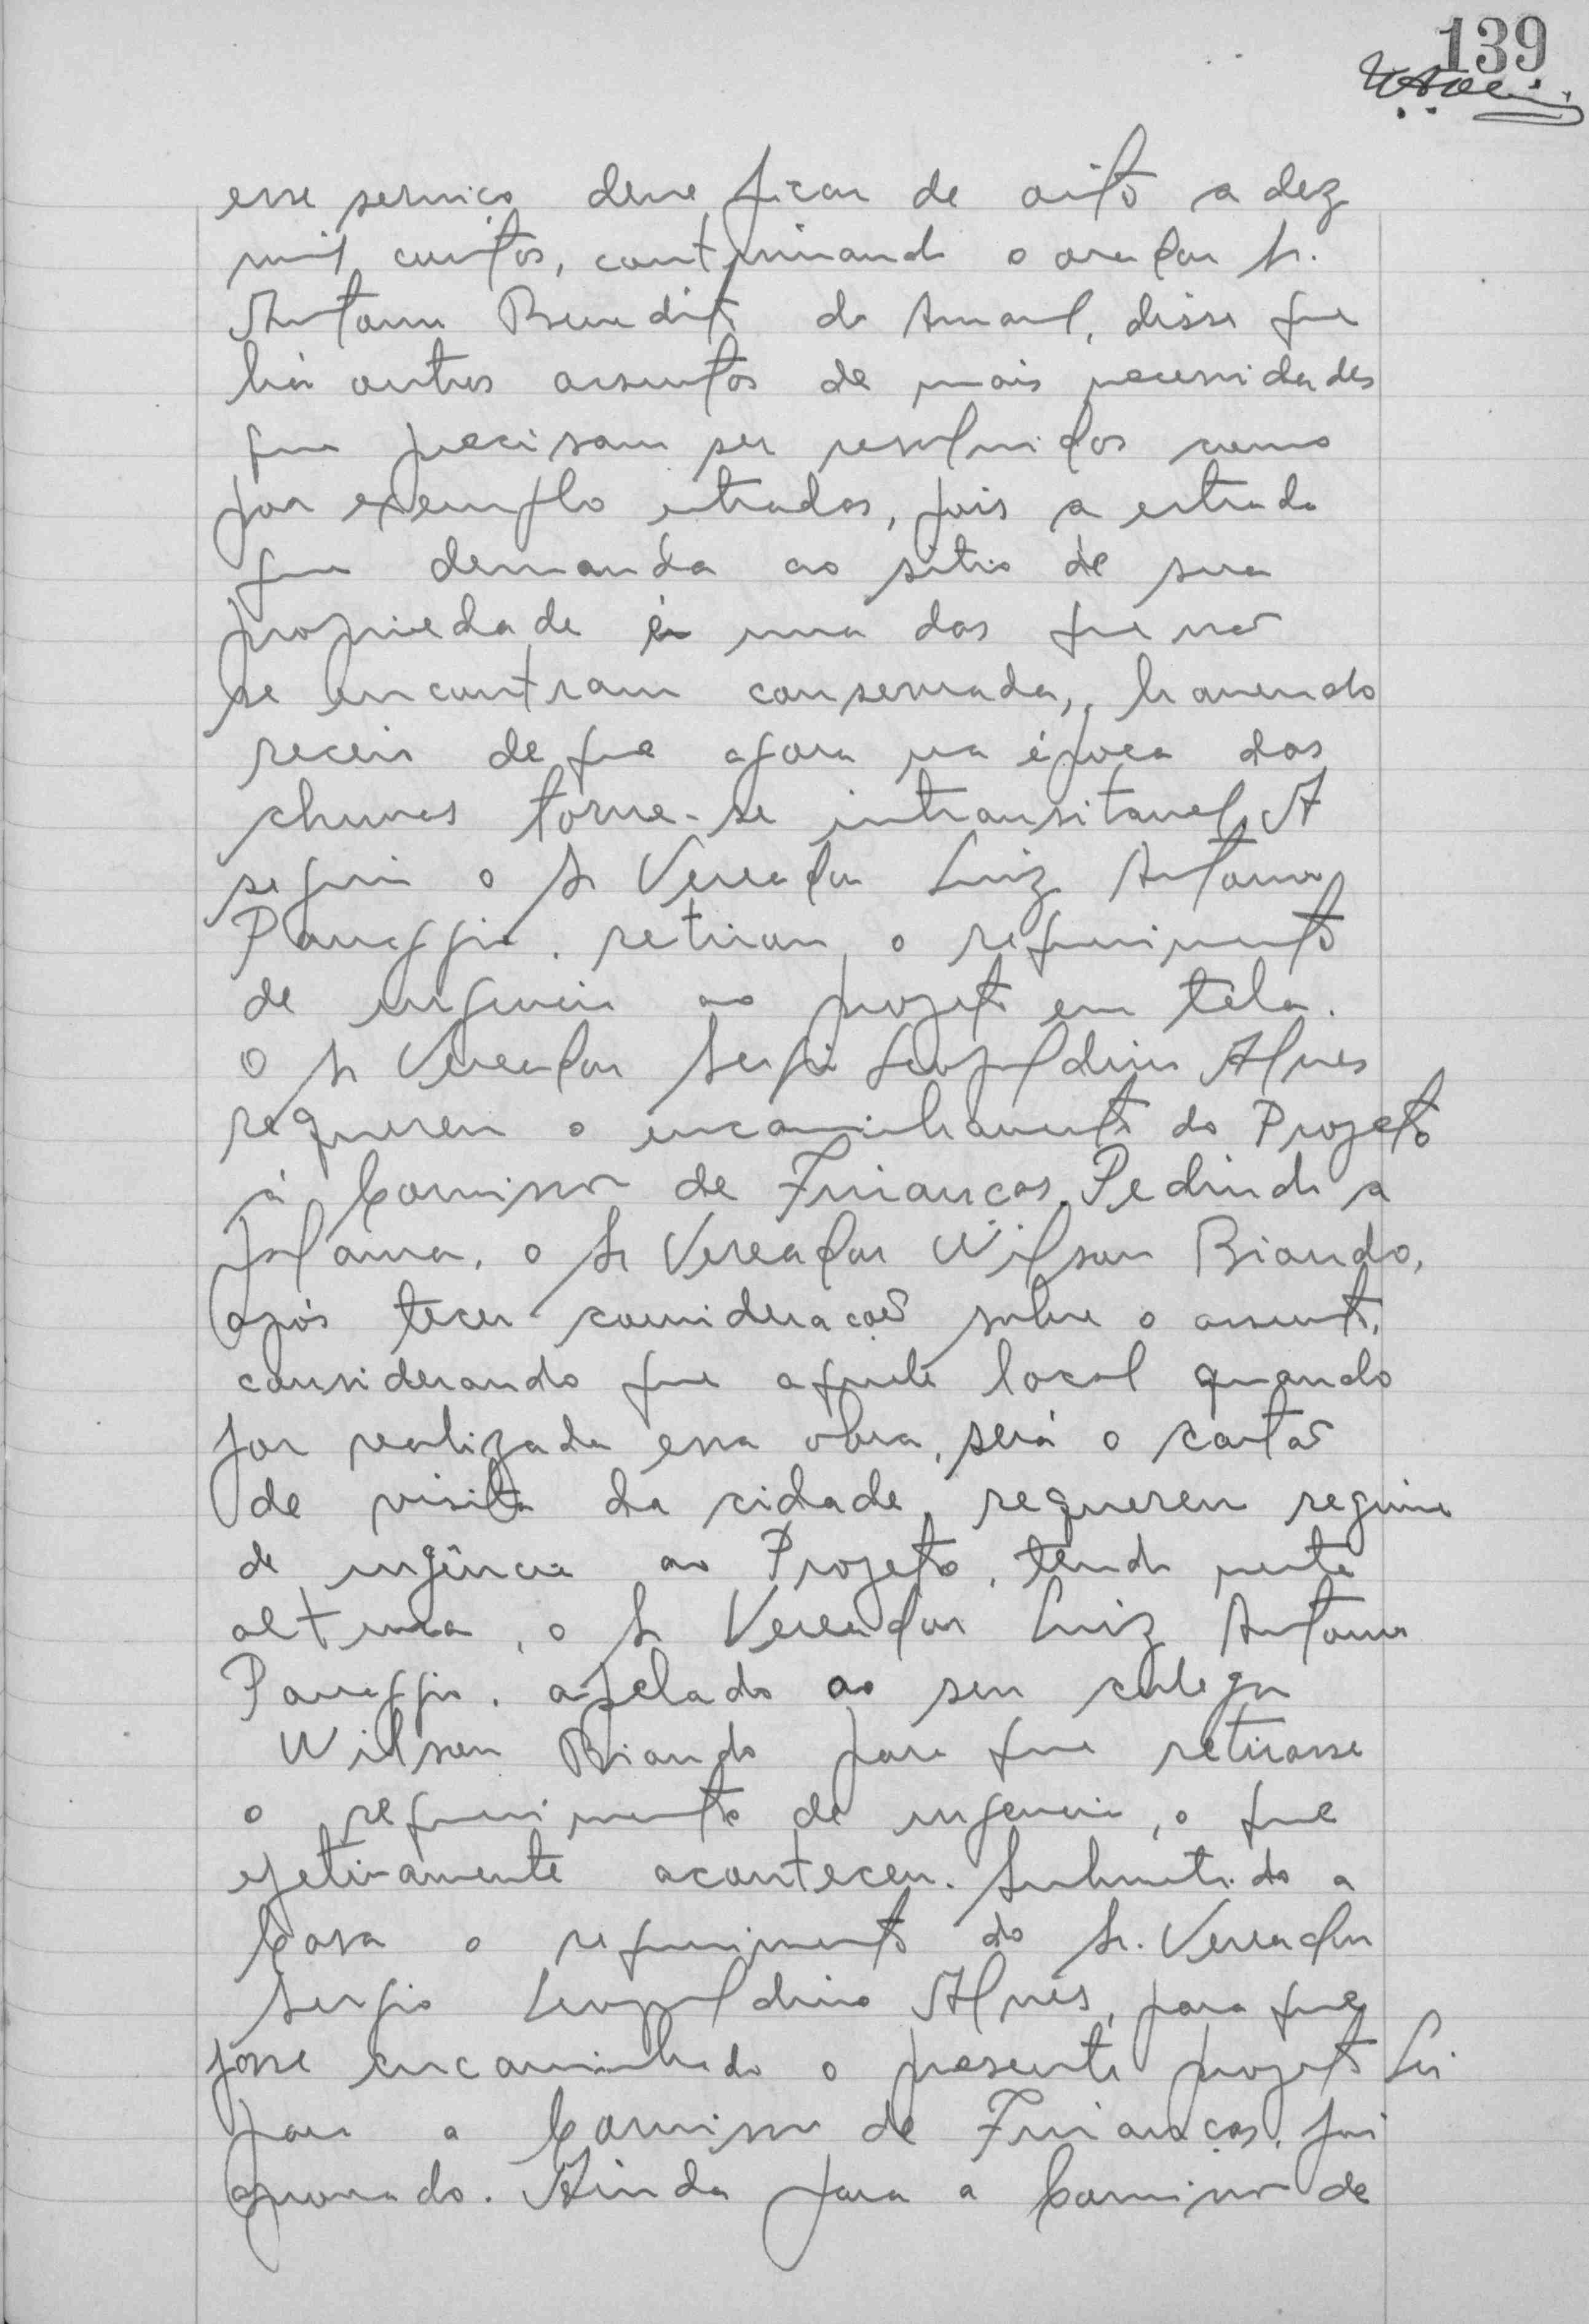 139
esse serviço deve ficar de oito a dez
mil contos, continuando o orador Sr.
Antonio Benedito do Amaral, disse que
há outros assuntos de mais necessidades
que precisam ser resolvidos como
por exemplo estradas, pois a estrada
que demanda ao sitio de sua
propriedade é uma das que não
se encontram conservada, havendo
receio de que agora na época das
chuvas torne-se intransitavel. A
seguir o Sr Vereador Luiz Antonio
retirou o requerimento
de urgencia ao projeto em tela.
O Sr Vereador Sergio Leopoldino Alves
requereu o encaminhamento do Projeto
à Comissão de Finanças. Pedindo a
palavra, o Sr Vereador Wilson Biando,
após tecer considerações sobre o assunto,
considerando que aquele local quando
for realizada essa obra, será o cartão
de visita da cidade, requereu regime
de urgência ao Projeto, tendo nesta
altura, o Sr Vereador Luiz Antonio
apelado ao seu colega
Wilson Biando para que retirasse
o requerimento de urgencia, o que
efetivamente aconteceu. Submetido a
Casa o requerimento do Sr. Vereador
Sergio Leopoldino Alves, para que
fosse encaminhado o presente projeto Lei
para a Comissão de Finanças, foi
aprovado. Ainda para a Comissão de